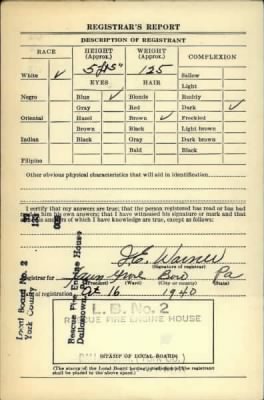 REGISTRAR'S REPORT
DESCRIPTION OF REGISTRANT
RACE HEIGHT (Approx.) WEIGHT (Approx.) COMPLEXION
5 ft 5" 125
White ✓ Sallow
EYES HAIR Light
Negro Blue ✓ Blonde Ruddy
Gray Red Dark ✓
Oriental Hazel Brown ✓ Freckled
Brown Black Light brown
Indian Black Gray Dark brown
Bald Black
Filipino
Other obvious physical characteristics that will aid in identification
I certify that my answers are true; that the person registered has read or has had
read to him his own answers; that I have witnessed his signature or mark and that
all of his answers of which I have knowledge are true, except as follows:
J. E. Warner
(Signature of registrar)
Registrar for Boro Pa
(Ward) (City or county)
Date of registration Oct. 16 1940
Local Board No. 2
York County
Rescue Fire Engine House
Dallastown
L. B. No. 2
RESCUE FIRE ENGINE HOUSE
(STAMP OF LOCAL BOARD)
(The stamp of the Local Board having jurisdiction of the registrant
shall be placed in the above space.)